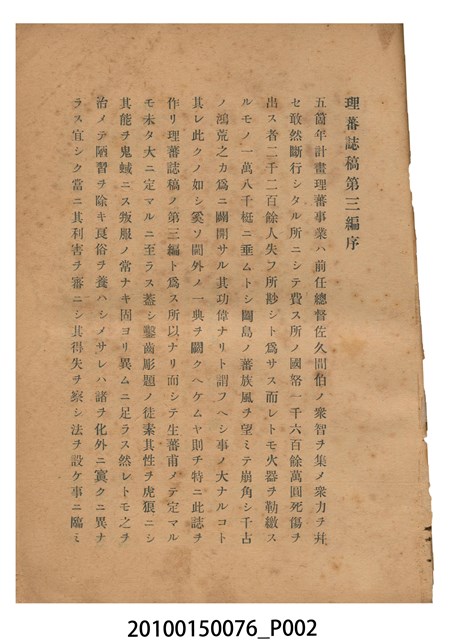 理蕃誌稿第三編序
五箇年計畫理蕃事業ハ前任總督佐久間伯ノ衆智ヲ集メ衆力ヲ并
セ敢然斷行シタル所ニシテ費ス所ノ國帑一千六百餘萬圓死傷ヲ
出ス者二千二百餘人失フ所尠シト爲サス而レトモ火器ヲ勒繳ス
ルモノ一萬八千梃ニ垂ムトシ闔島ノ蕃族風ヲ望ミテ崩角シ千古
ノ鴻荒之カ爲ニ闢開サル其功偉ナリト謂フヘシ事ノ大ナルコト
其レ此クノ如シ奚ソ閫外ノ一典ヲ闕クヘケムヤ則チ特ニ此誌ヲ
作リ理蕃誌稿ノ第三編ト爲ス所以ナリ而シテ生蕃甫メテ定マル
モ未タ大ニ定マルニ至ラス蓋シ鑿齒彫題ノ徒素其性ヲ虎狼ニシ
其能ヲ鬼蜮ニス叛服ノ常ナキ固ヨリ異ムニ足ラス然レトモ之ヲ
治メテ陋習ヲ除キ良俗ヲ養ハシメサレハ諸ヲ化外ニ寘クニ異ナ
ラス宜シク當ニ其利害ヲ審ニシ其得失ヲ察シ法ヲ設ケ事ニ臨ミ
20100150076_P002